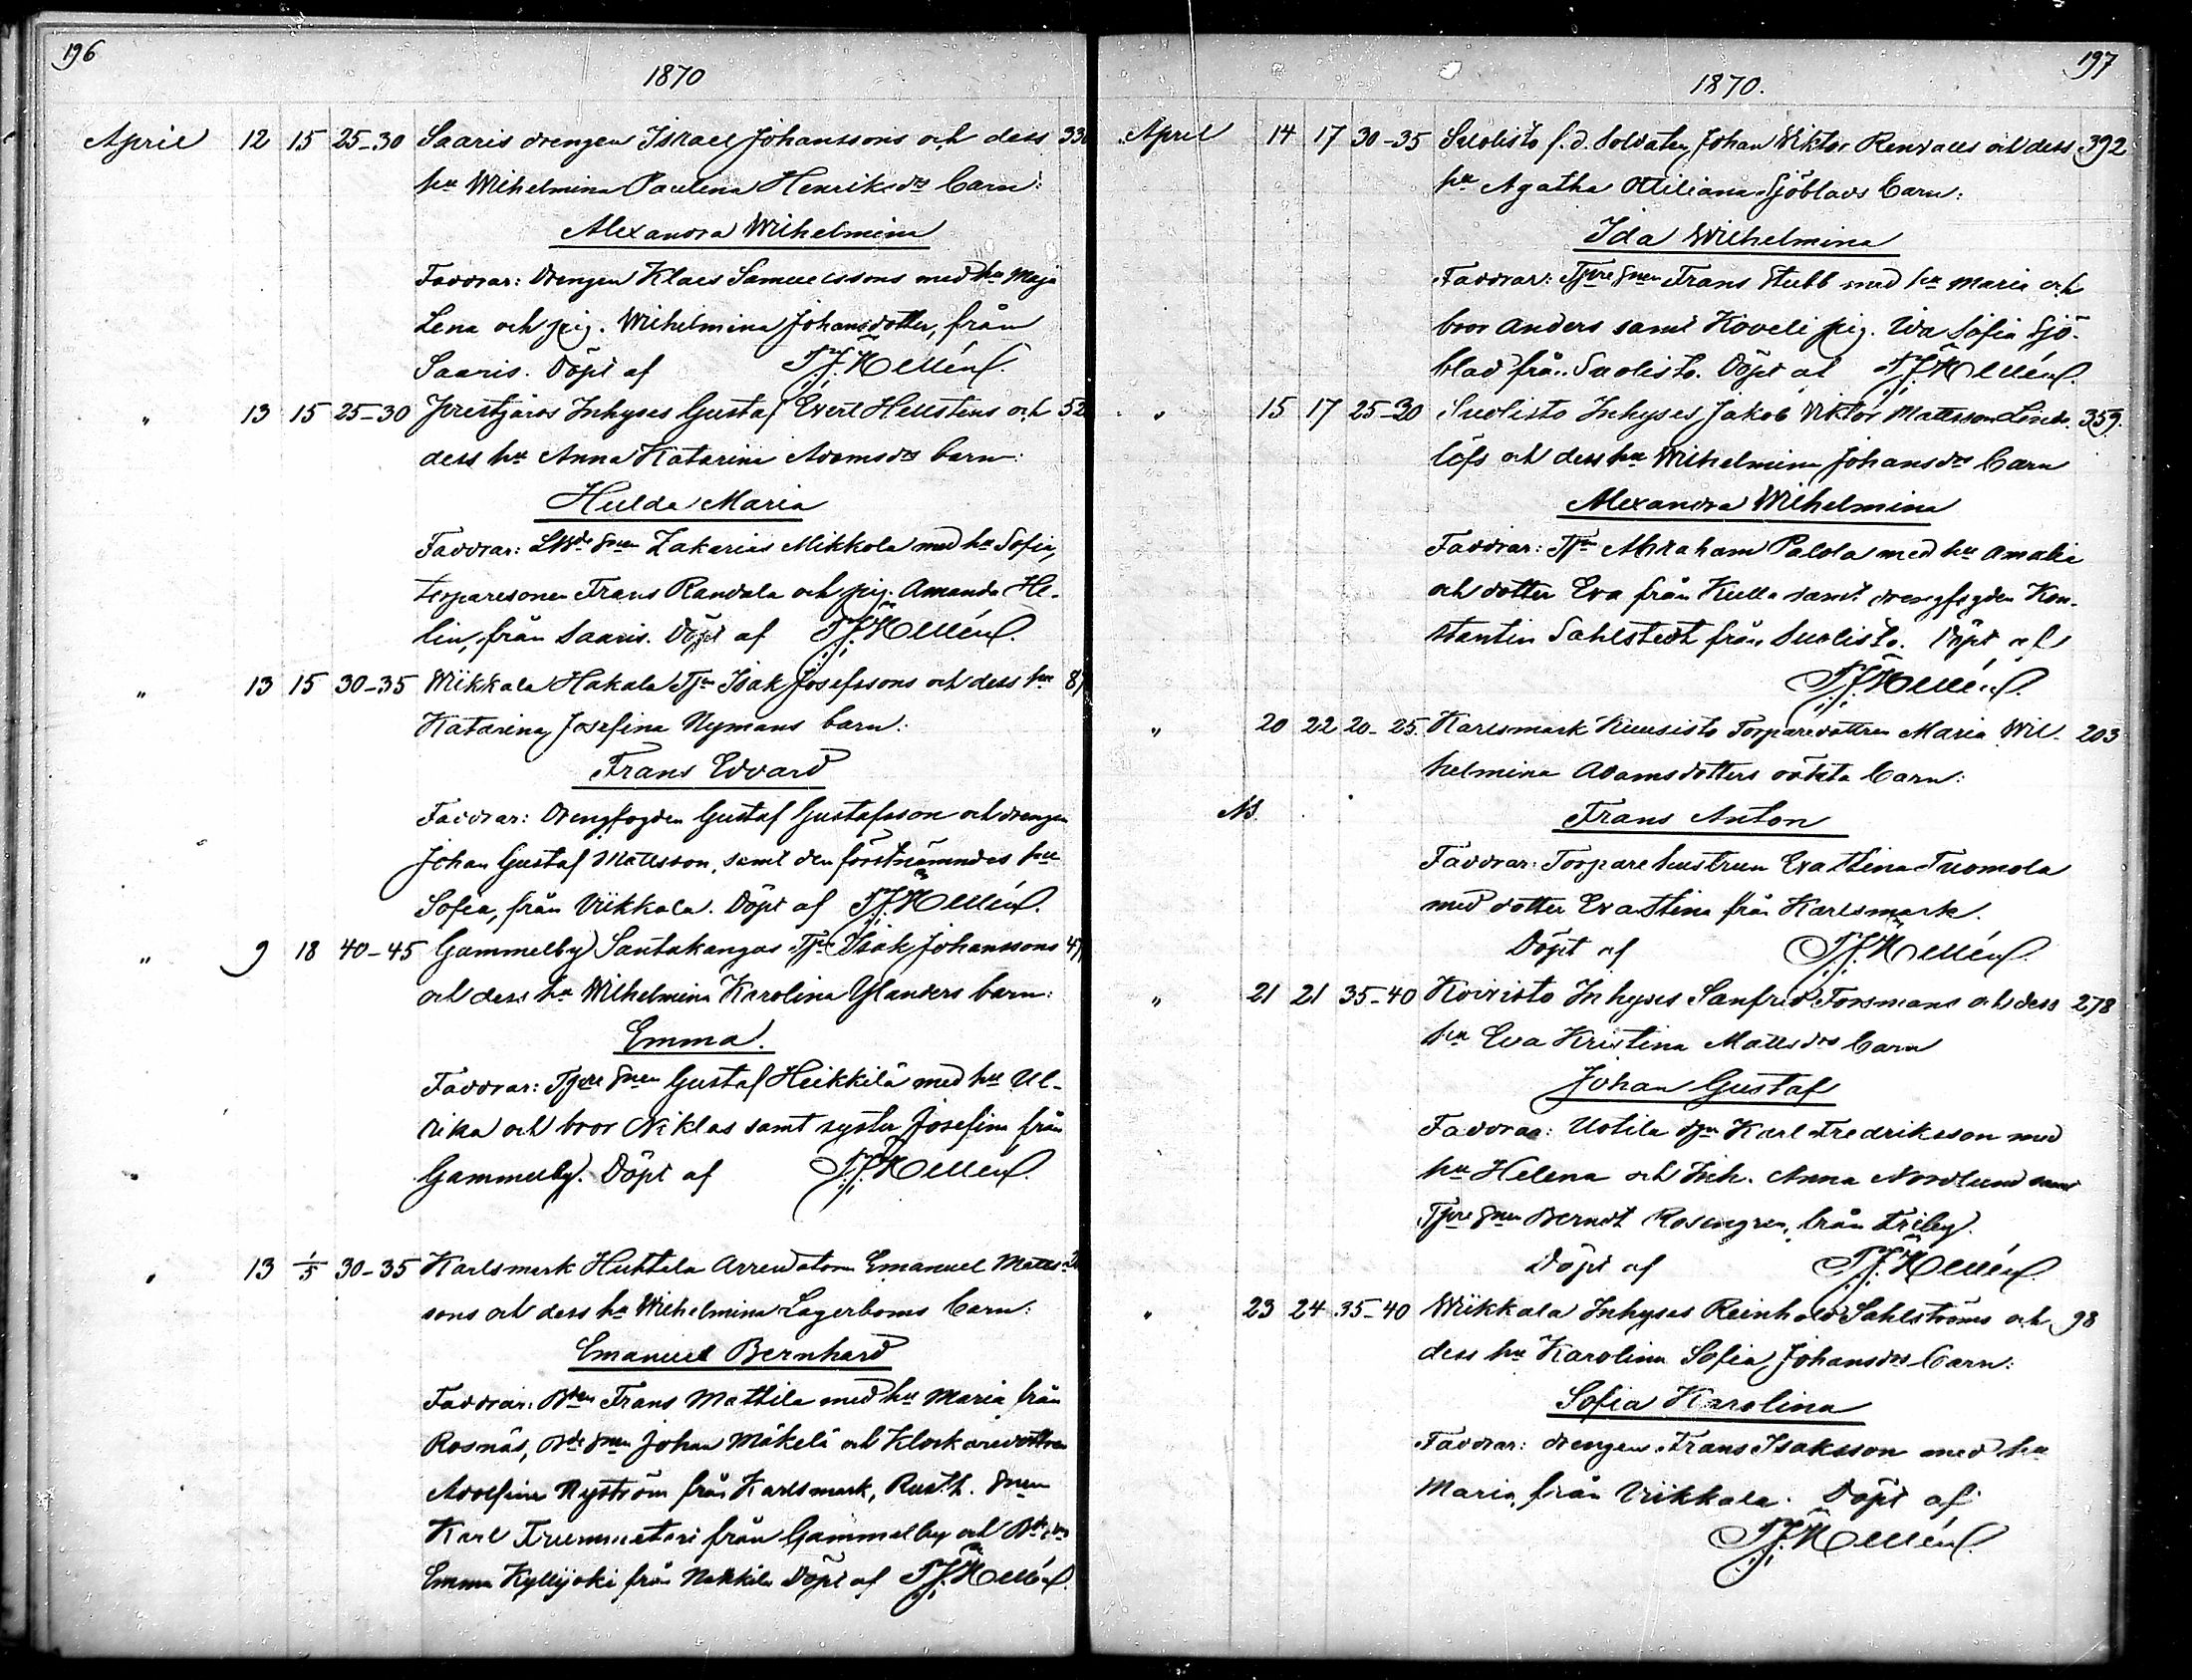 196
1870
April 12 15 25-30 Saaris drengen Israel Johanssons och dess 33
hu Wilhelmina Paulina Henriksdrs barn:
Alexandra Wilhelmina
Faddrar: Drengen Klaes Samuelssons med hu Maja
Lena och pig. Wilhelmina Johansdotter, från
Saaris. Döpt af Hellén.
" 13 15 25-30 Prestgårds Inhyses Gustaf Evert Hellstens och 52
dess hu Anna Katarina Adamsdrs barn:
Hulda Maria
Faddrar: snen Zakarias Mikkola med hu Sofia,
torparesonen Frans Randala och pig. Amanda He-
lin, från Saaris. Döpt af Hellén.
" 13 15 30-35 Wikkala Hakala Tpn Isak Josefssons och dess hu 8
Katarina Josefina Nymans barn:
Frans Edvard
Faddrar: Drengfogden Gustaf Gustafsson och drengen
Johan Gustaf Mattsson, samt den förstnämndes hu
Sofia, från Viikkala. Döpt af Hellén.
" 9 18 40-45 Gammelby Santakangas Tpn Isak Johanssons 4
och dess hu Wilhelmina Karolina Ylanders barn:
Emma.
Faddrar: Tpre snen Gustaf Heikkilä med hu Ul-
rika och bror Niklas samt syster Josefina från
Gammelby. Döpt af Hellén.
" 13 1/5 30-35 Karlsmark Huhtala Arrendatorn Emanuel Matts-
sons och dess hu Wilhelmina Lagerboms barn:
Emanuel Bernhard
Faddrar: Bden Frans Mattila med hu Maria från
Rosnäs, Bde snen Johan Mäkelä och Klockaredottren
Adolfina Nyström från Karlsmark, Rusth. snen
Karl från Gammelby och Bde drn
Emma Kyllijoki från Nakkila Döpt af Hellén.
197
1870.
April 14 17 30-35 Suolisto f.d. Soldaten Johan Viktor Renvalls och dess 392
hu Agatha Otiliana Sjöblads barn:
Ida Wilhelmina
Faddrar: Tpre snen Frans Stubb med hu Maria och
bror Anders samt Hoveli pig. Ida Sofia Sjö-
blad från Suolisto. Döpt af Hellén.
" 15 17 25-30 Suolisto Inhyses Jakob Viktor Mattsson Lind- 359.
löfs och dess hu Wilhelmina Johansdrs barn
Alexandra Wilhelmina
Faddrar: Tpn Abraham Palola med hu Amalia
och dotter Eva från Kulla samt drengfogden Kon-
stantin Sahlstedt från Suolisto. Döpt af
Hellén.
" 20 22 20-25. Karlsmark Kuusisto Torparedottren Maria Wil- 203
helmina Adamsdotters oäkta barn:
NB.
Frans Anton
Faddrar: Torparehustrun Eva Stina Tuomola
med dotter Eva Stina från Karlsmark.
Döpt af Hellén
" 21 21 35-40 Koivisto Inhyses Sanfrid Forsmans och dess 278
hu Eva Kristina Mattsdrs barn
Johan Gustaf
Faddrar: Uotila Tpn Karl Fredriksson med
hu Helena och Inh. Anna Nordlund samt
Tpre snen Berndt Rosengren, från Friby.
Döpt af Hellén
" 23 24 35-40 Wiikkala Inhyses Reinhold Sahlströms och 98
dess hu Karolina Sofia Johansdrs barn:
Sofia Karolina
Faddrar: drengen Frans Isaksson med hu
Maria från Viikkala. Döpt af
Hellén.